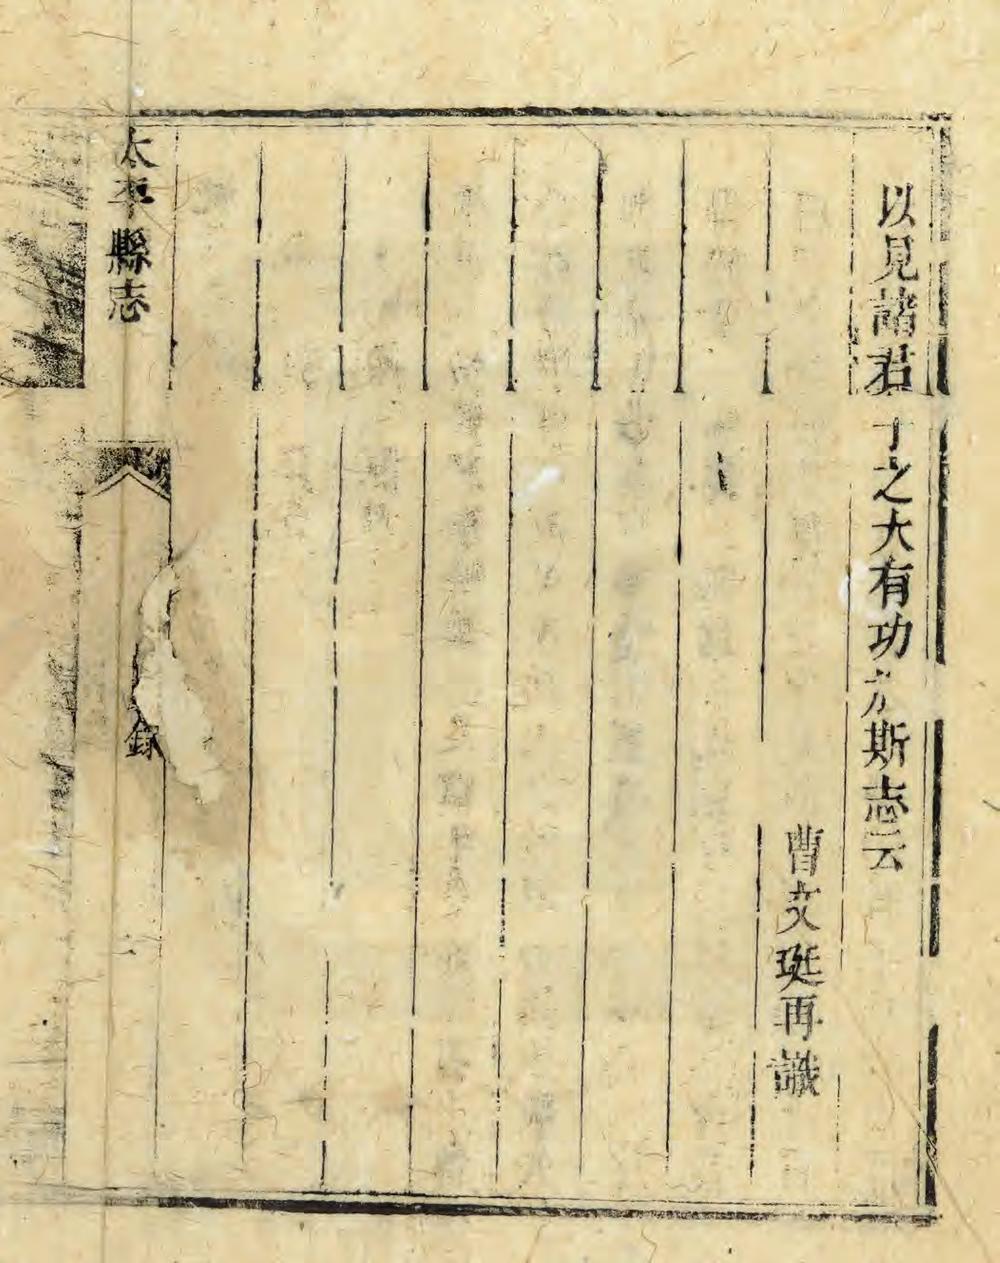 以見諸君子之大有功於斯志云
曹文珽再識
太平縣志
錄
二